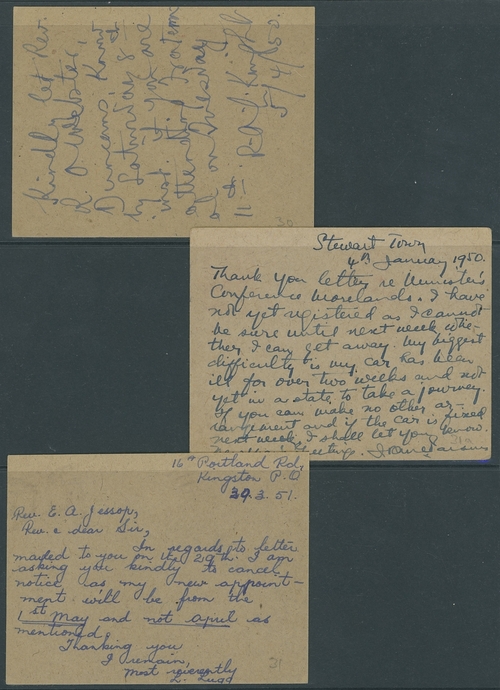 Kindly let Rev.
R. O. Webster,
Duncans, know
by Saturday 8th
inst. if you are
attending Fratern
al on Tuesday
11th. R.A.L. Knight
5/4/50.
30
Stewart Town
4th January 1950.
Thank you letter re Minister's
Conference Morelands. I have
not yet registered as I cannot
be sure until next week whe-
ther I can get away. My biggest
difficulty is my car has been
ill for over two weeks and not
yet in a state to take a journey.
If you can make no other ar-
rangement and if the car is fixed
next week, I shall let you know.
Greeting.
16A Portland Rd,
Kingston P.O
29.3.51.
Rev. E. A. Jessop,
Rev. & dear Sir,
In regards to letter
mailed to you on the 29th. I am
asking you kindly to cancel
notice as my new appoint-
ment will be from the
1st May and not April as
mentioned.
Thanking you
I remain,
Most reverently
31